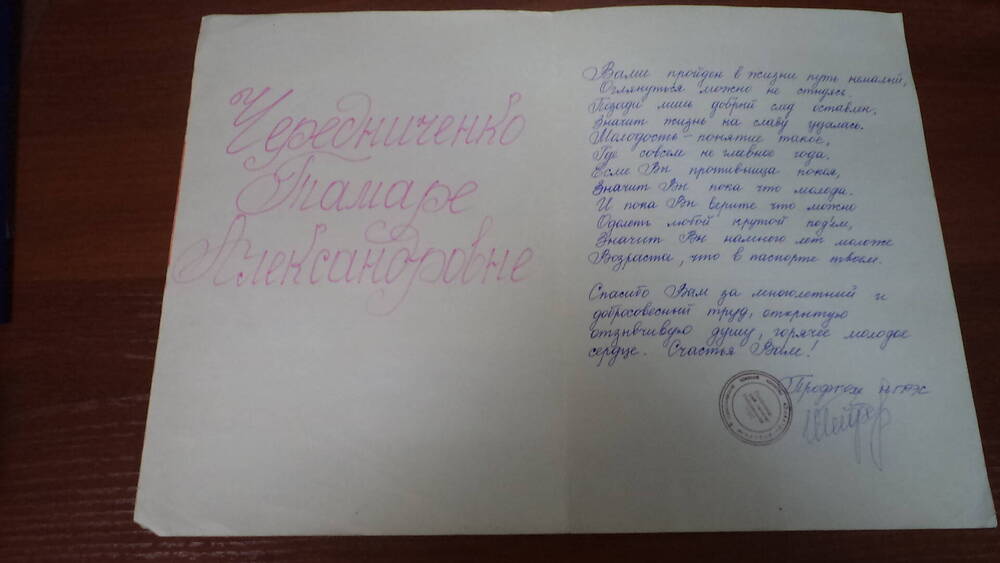 Чередниченко
Тамаре
Александровне
Вами пройден в жизни путь немалый,
Оглянуться можно не стыдясь.
Позади лишь добрый след оставлен,
Значит жизнь на славу удалась.
Молодость – понятие такое,
Где совсем не главное года.
Если Вы противница покоя,
Значит Вы пока что молоды.
И пока Вы верите что можно
Одолеть любой крутой подъём,
Значит Вы намного лет моложе
Возраста, что в паспорте твоем.
Спасибо Вам за многолетний и
добросовесный труд, открытую
отзывчивую душу, горячее молодое
сердце. Счастья Вам!
Профком